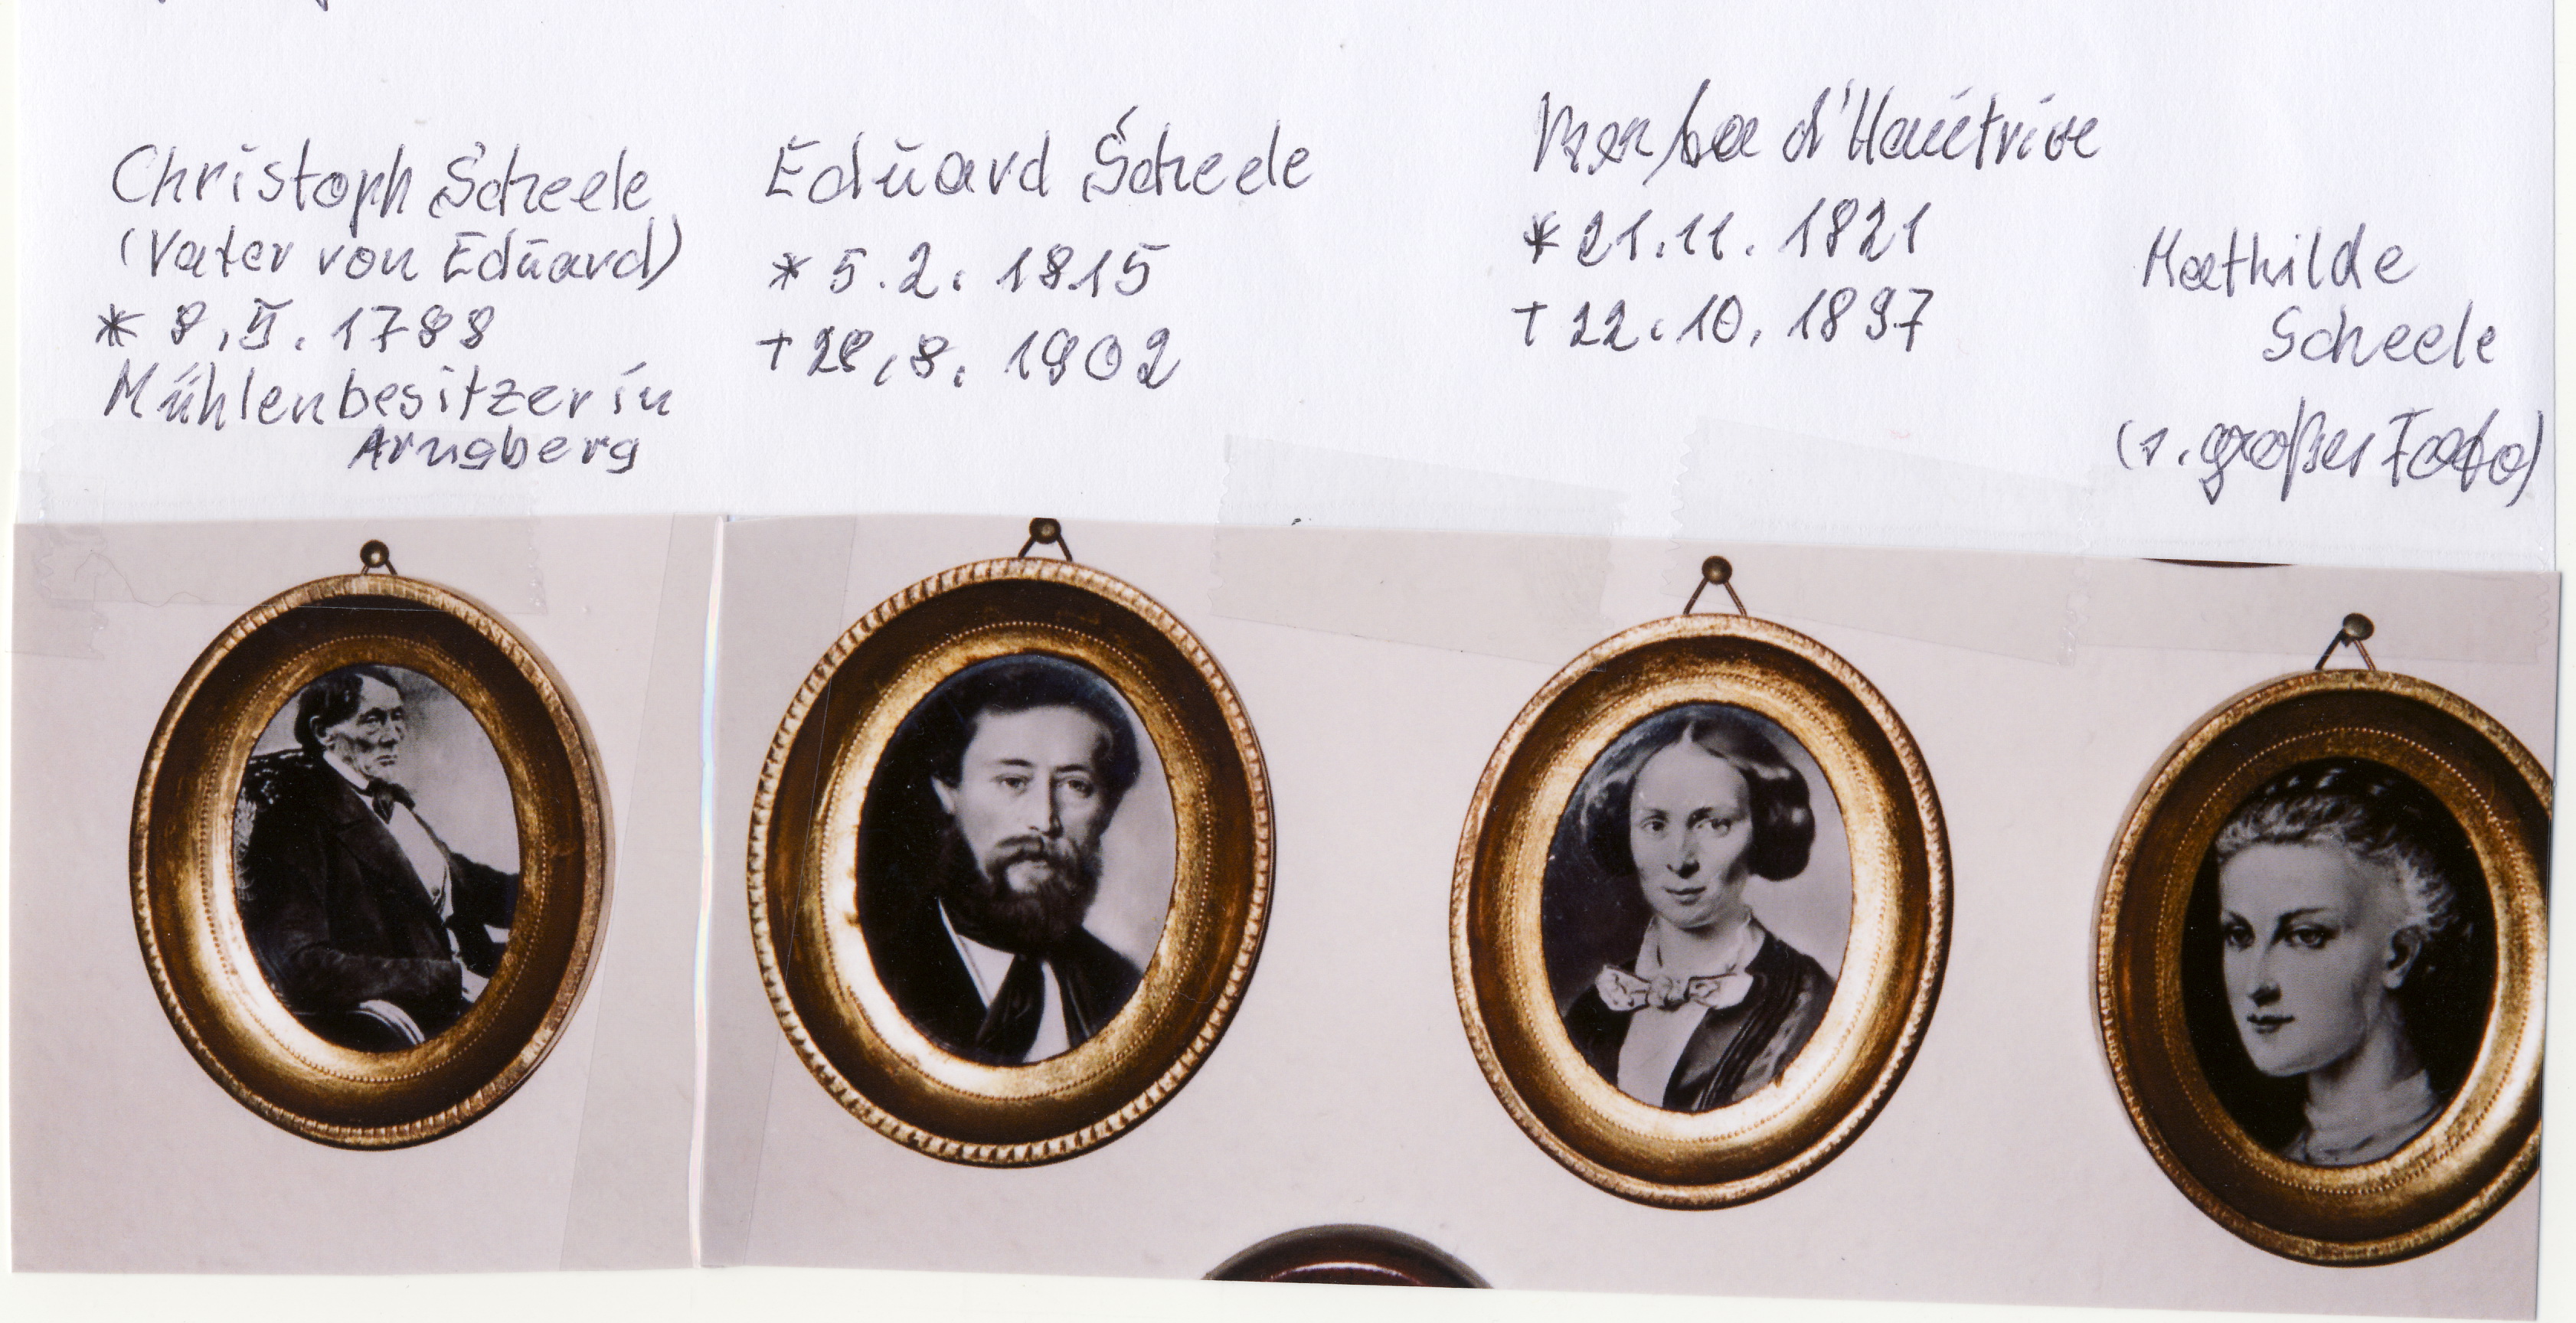 Christoph Scheele
(Vater von Eduard)
* 8.5.1788
Mühlenbesitzer in
Arnsberg
Eduard Scheele
* 5.2.1815
† 28.8.1902
d'Hautrive
* 21.11.1821
† 22.10.1897
Mathilde
Scheele
(s. großes Foto)